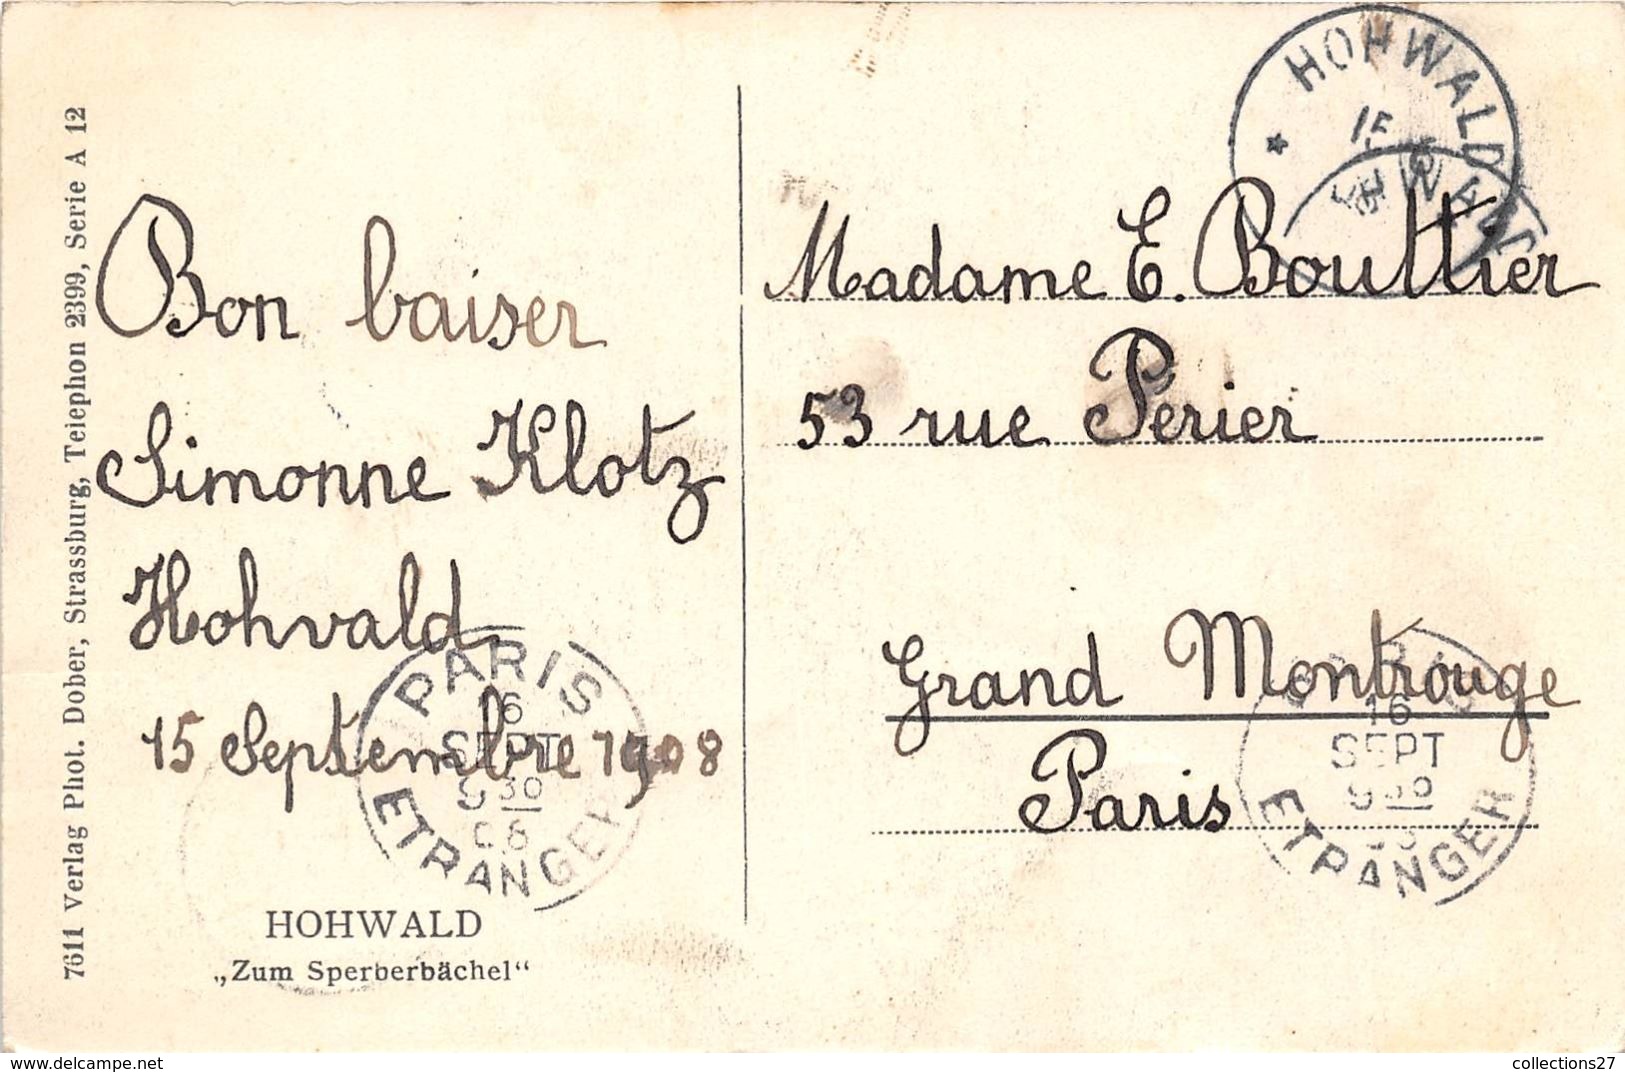 7611 Verlag Phot. Dober, Strassburg, Telephon 2399, Serie A 12
Bon baiser
Simonne Klotz
Hohvald
15 Septembre 1908
HOHWALD
„Zum Sperberbächel“
HOHWALD
15
Madame E. Bouttier
53 rue Perier
Grand Montrouge
Paris
PARIS
16
SEPT
9 30
08
ETRANGER
PARIS
16
SEPT
9 30
08
ETRANGER
https://www.delcampe.net
collections27